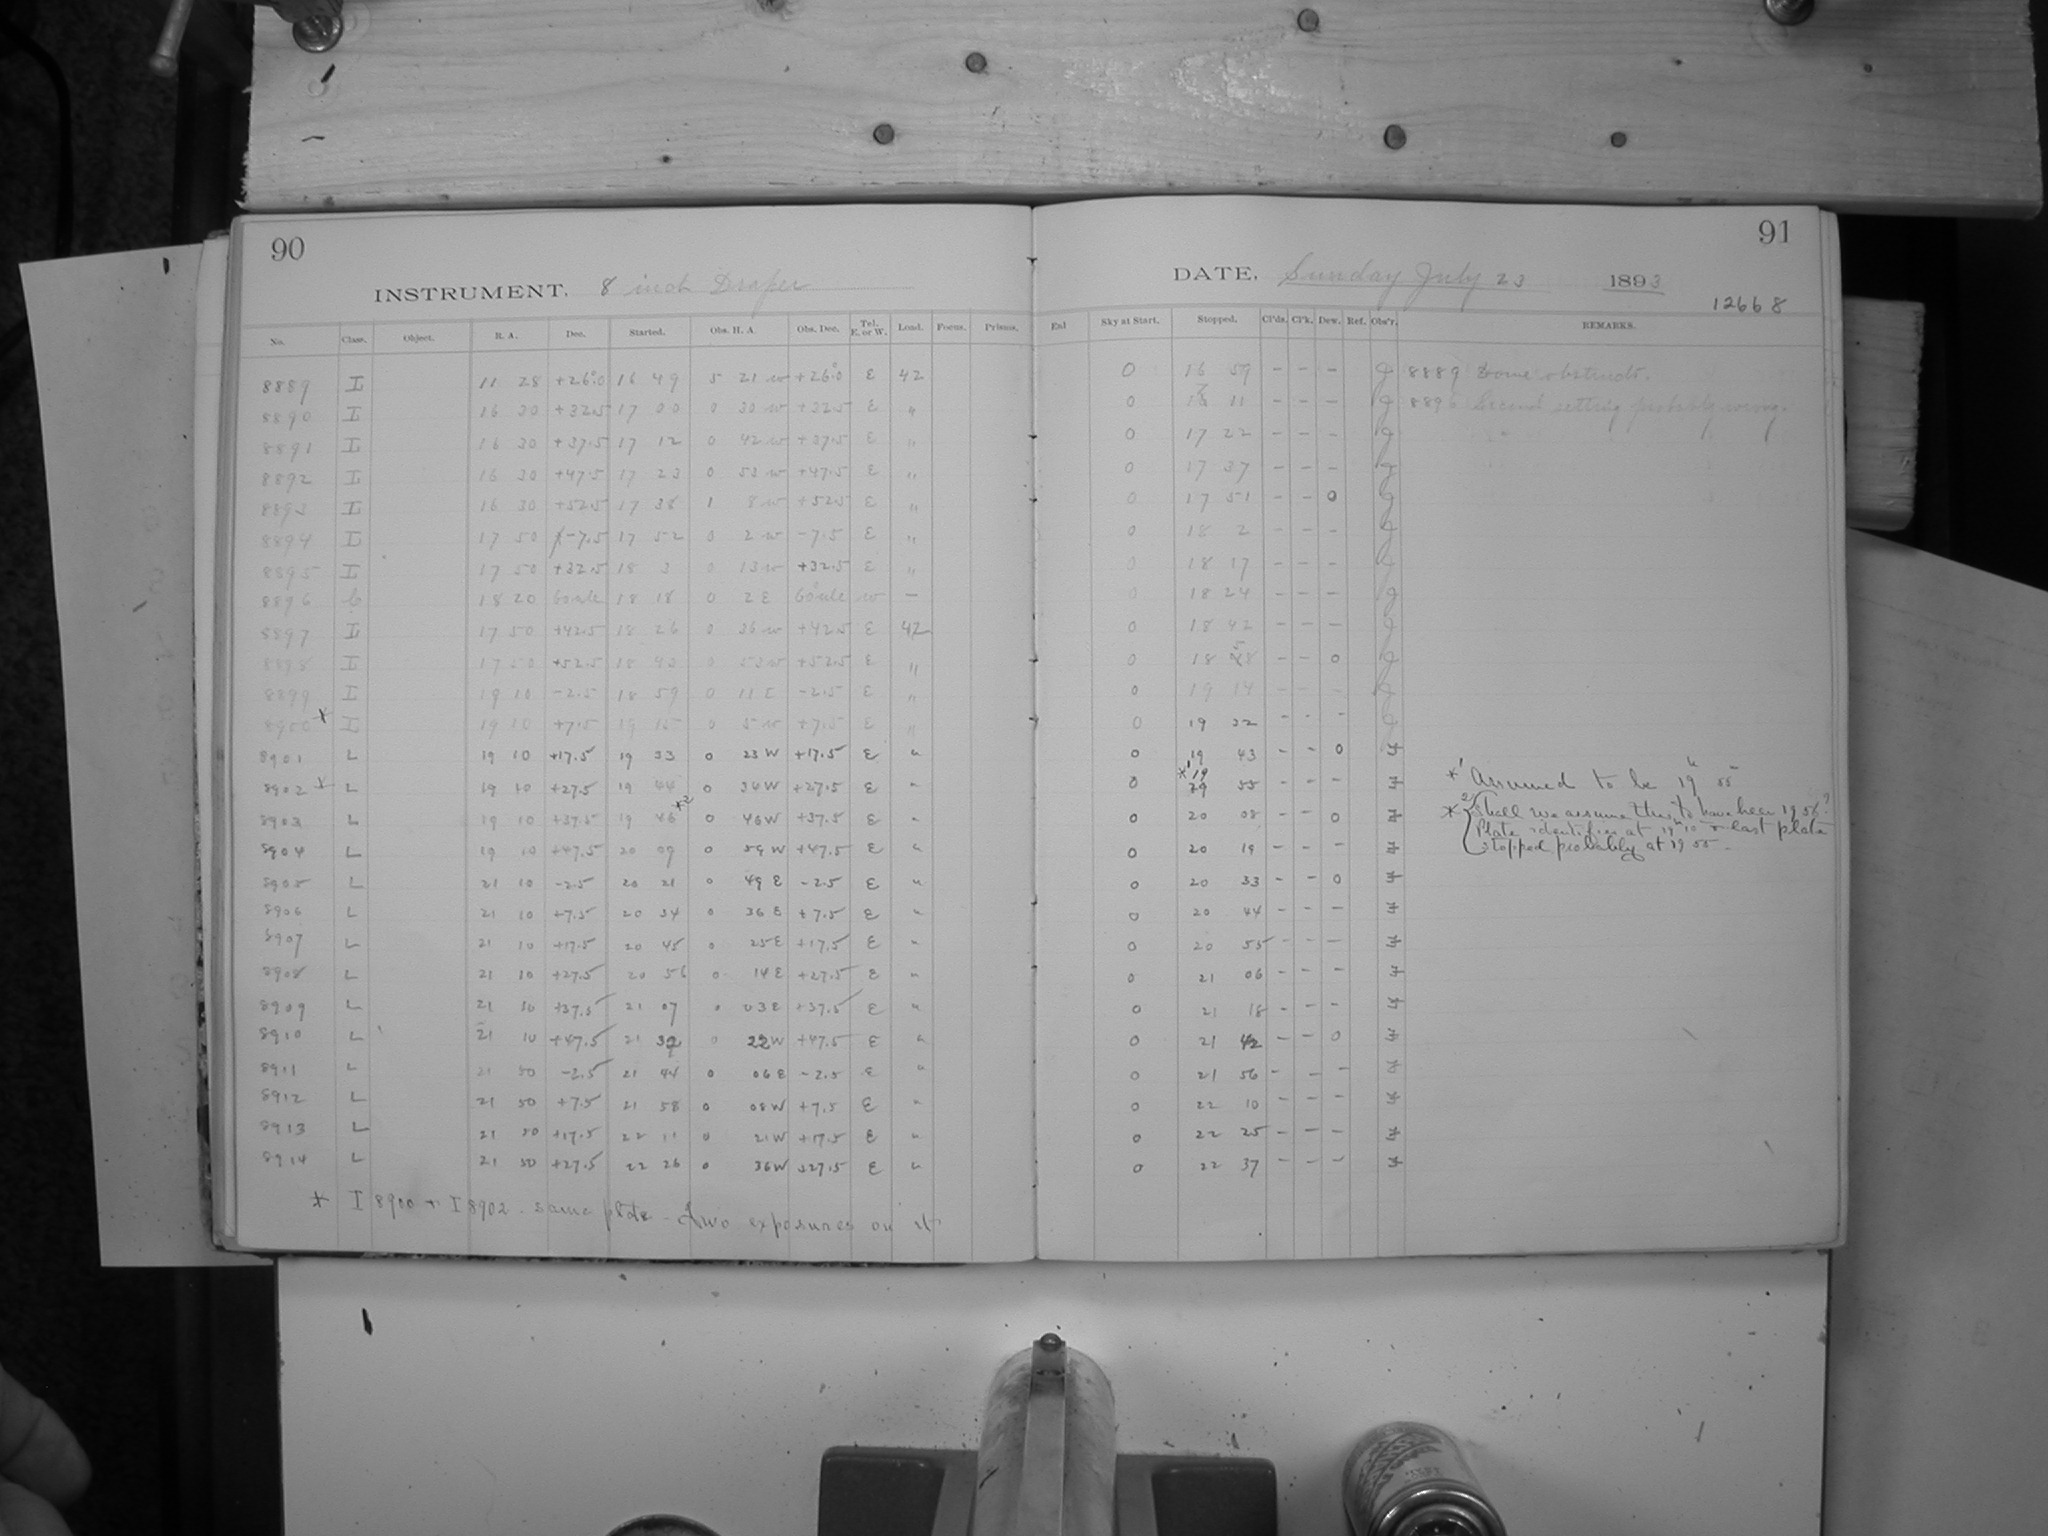 90
INSTRUMENT. 8 inch Draper
No. Class. Object. R. A. Dec. Started. Obs. H. A. Obs. Dec. Tel. E. or W. Load. Focus. Prisms.
8889 I 11 28 +26°.0 16 49 5 21 w +26°.0 E 42
8890 I 16 30 +32.5 17 00 0 30 w +32.5 E "
8891 I 16 30 +37.5 17 12 0 42 w +37.5 E "
8892 I 16 30 +47.5 17 23 0 53 w +47.5 E "
8893 I 16 30 +52.5 17 38 1 8 w +52.5 E "
8894 I 17 50 -7.5 17 52 0 2 w -7.5 E "
8895 I 17 50 +32.5 18 3 0 13 w +32.5 E "
8896 18 20 18 18 0 2 E w –
8897 I 17 50 +42.5 18 26 0 36 w +42.5 E 42
8898 I 17 50 +52.5 18 43 0 53 w +52.5 E "
8899 I 19 10 -2.5 18 59 0 11 E -2.5 E "
8900 * I 19 10 +7.5 19 15 0 5 w +7.5 E "
8901 L 19 10 +17.5 19 33 0 23 W +17.5 E "
8902 * L 19 10 +27.5 19 44 0 34 W +27.5 E "
8903 L 19 10 +37.5 19 46 *2 0 46 W +37.5 E "
8904 L 19 10 +47.5 20 09 0 59 W +47.5 E "
8905 L 21 10 -2.5 20 21 0 49 E -2.5 E "
8906 L 21 10 +7.5 20 34 0 36 E +7.5 E "
8907 L 21 10 +17.5 20 45 0 25 E +17.5 E "
8908 L 21 10 +27.5 20 56 0 14 E +27.5 E "
8909 L 21 10 +37.5 21 07 0 03 E +37.5 E "
8910 L 21 10 +47.5 21 32 0 22 W +47.5 E "
8911 L 21 50 -2.5 21 44 0 06 E -2.5 E "
8912 L 21 50 +7.5 21 58 0 08 W +7.5 E "
8913 L 21 50 +17.5 22 11 0 21 W +17.5 E "
8914 L 21 50 +27.5 22 26 0 36 W +27.5 E "
* I 8900 + I 8902. same plate – two exposures on it
91
DATE. Sunday July 23 1893
12668
Ex1 Sky at Start. Stopped. Cl'ds. Cl'k. Dew. Ref. Obs'r. REMARKS.
0 16 59 – – – J 8889 Dome obstructs.
0 17 11 – – – J 8890 Second setting probably wrong.
0 17 22 – – – J
0 17 37 – – – J
0 17 51 – – 0 J
0 18 2 – – – J
0 18 17 – – – J
0 18 24 – – – J
0 18 42 – – – J
0 18 58 – – 0 J
0 19 14 – – – J
0 19 32 – – – J
0 19 43 – – 0
0 *1 19 55 – – – *1 Assumed to be 19h 55
0 20 08 – – 0 *2 Shall we assume this to have been 19 56?
Plate identifies at 19h 10 + last plate
0 20 19 – – – stopped probably at 19 55.
0 20 33 – – 0
0 20 44 – – –
0 20 55 – – –
0 21 06 – – –
0 21 18 – – –
0 21 42 – – 0
0 21 56 – – –
0 22 10 – – –
0 22 25 – – –
0 22 37 – – –